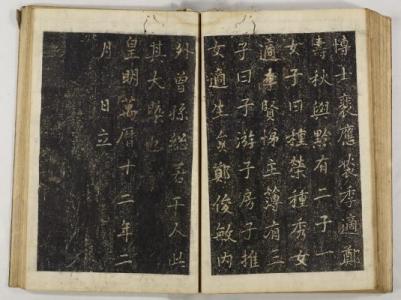 博士應季適鄭
壽秋與黔有二子一
女子曰種榮種秀女
適李賢悌主簿有三
子曰子游子房子推
女適生員鄭俊敏內
外曾孫總若干人此
其大槩也
皇明萬曆十二年二
月 日立